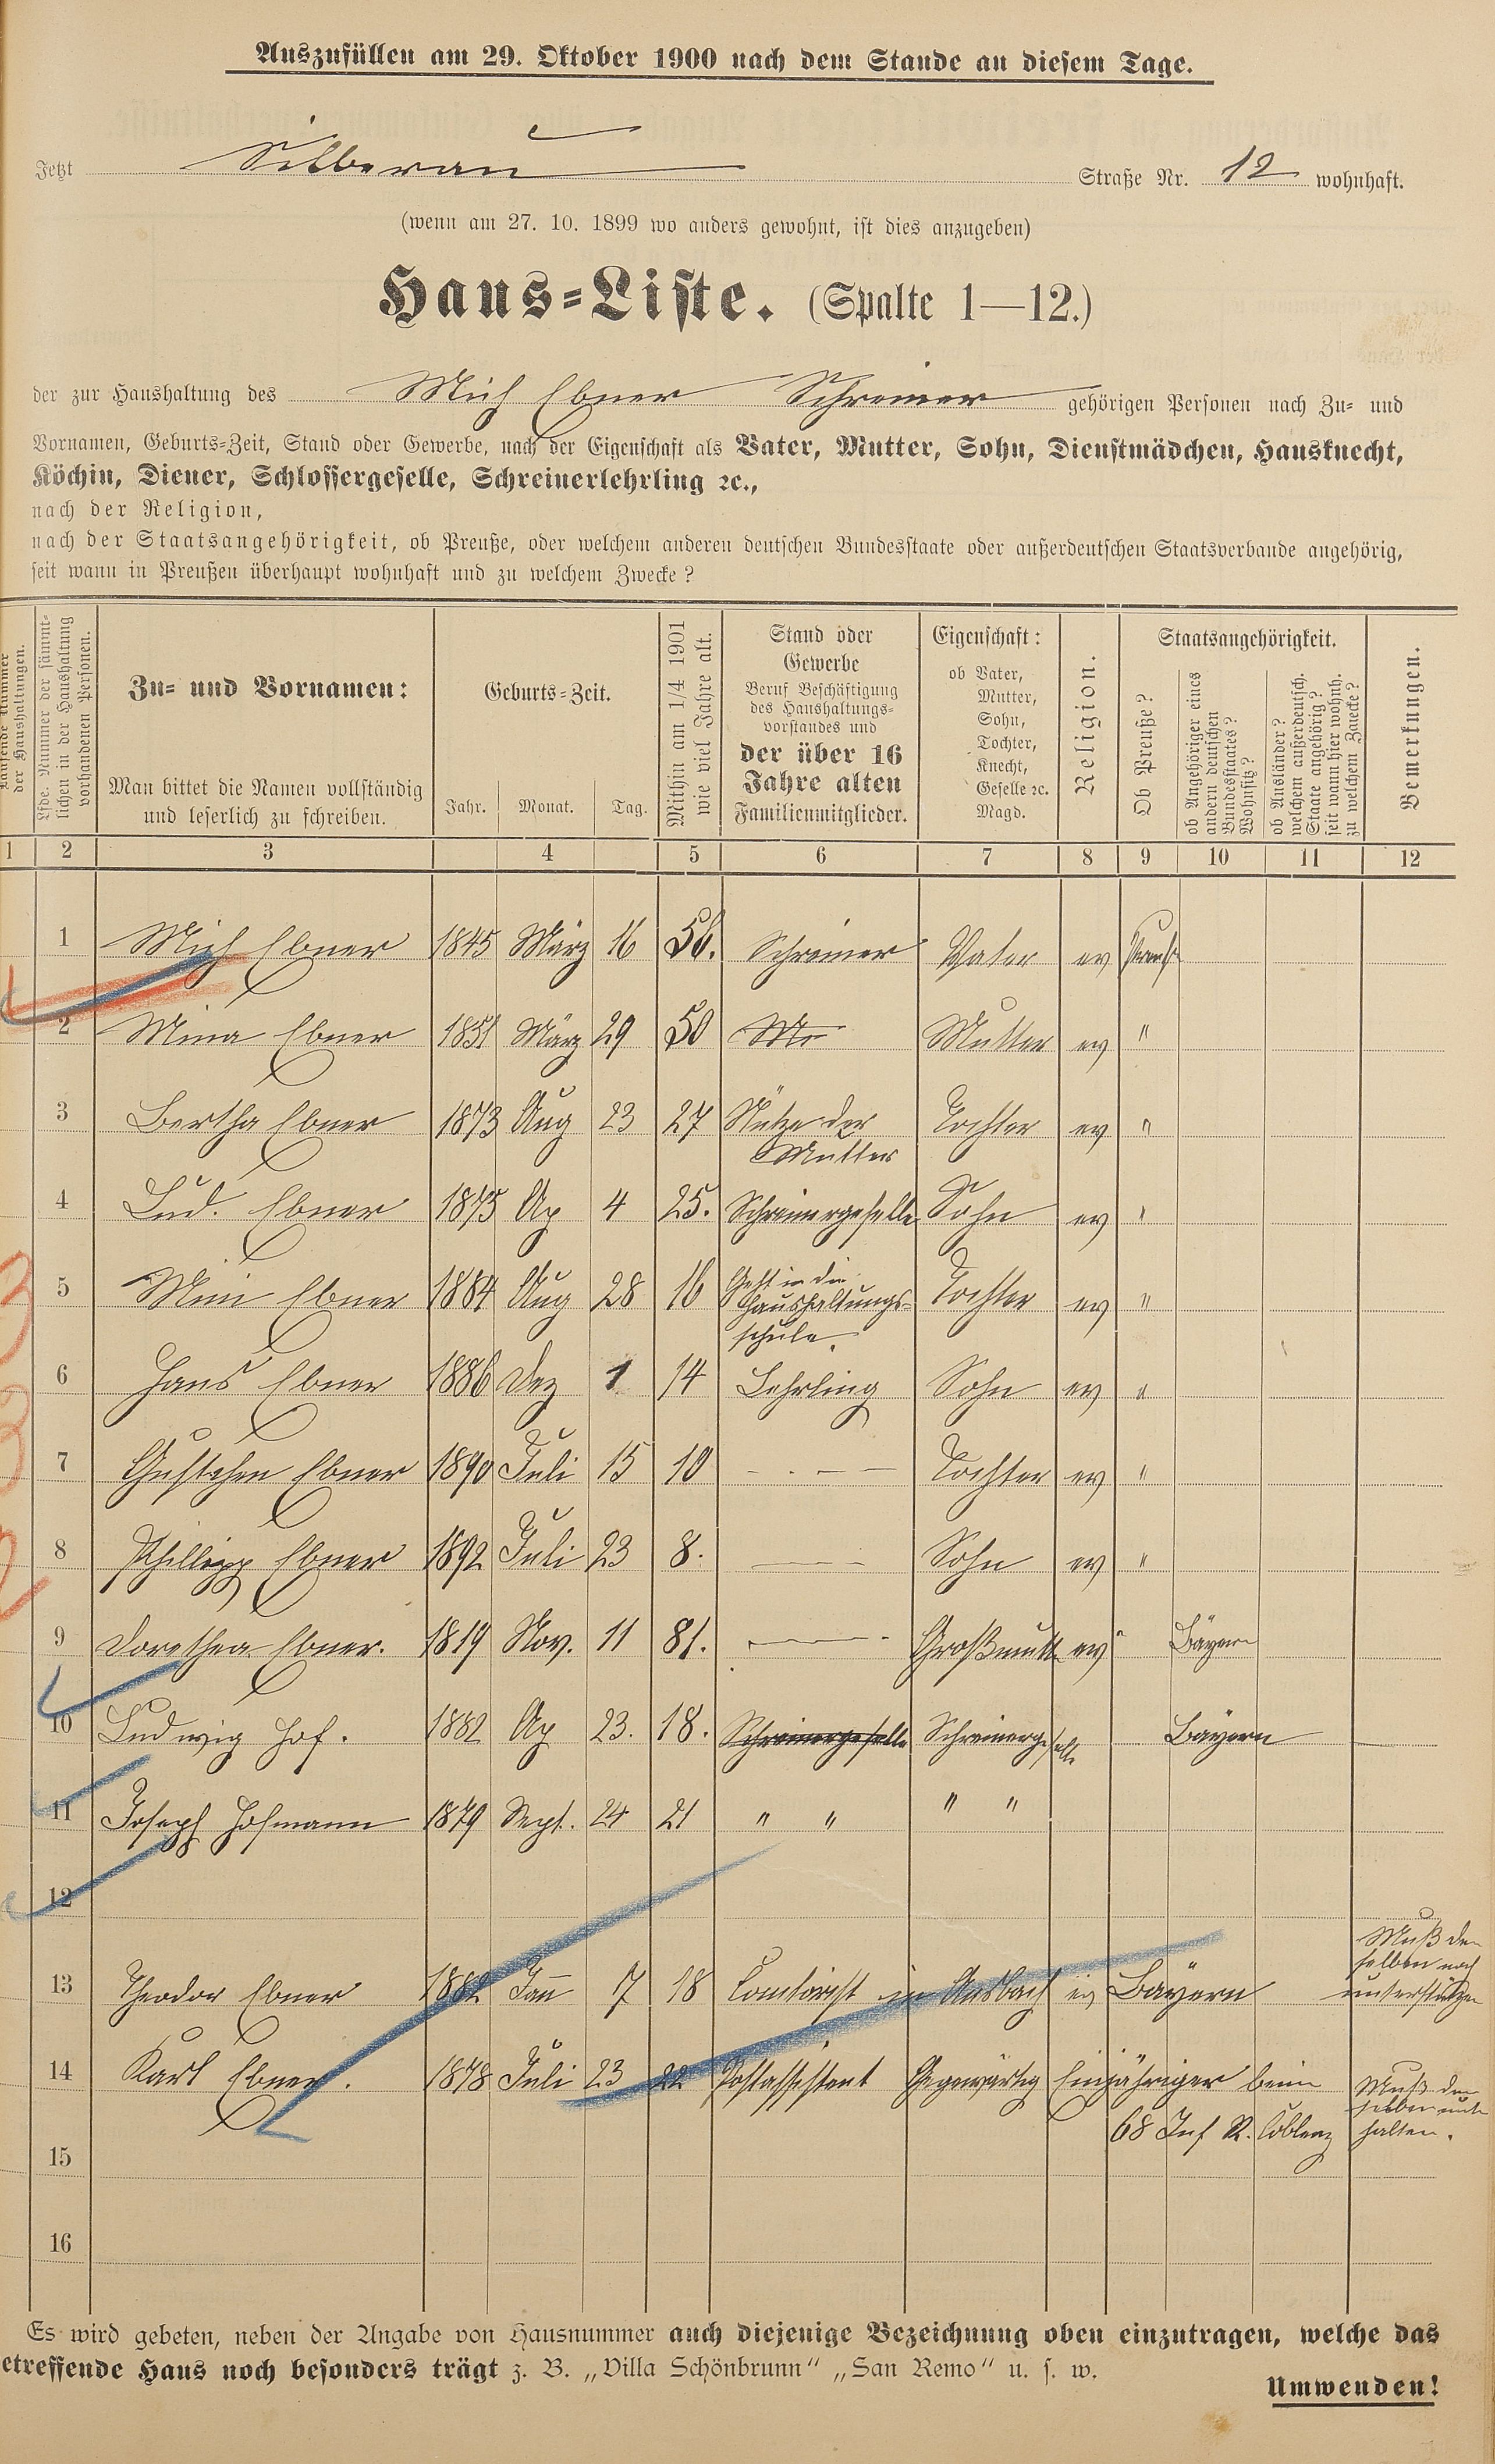 Auszufüllen am 29. Oktober 1900 nach dem Stande an diesem Tage.
Jetzt Silberau Straße Nr. 12 wohnhaft.
(wenn am 27. 10. 1899 wo anders gewohnt, ist dies anzugeben)
Haus-Liste. (Spalte 1—12.)
der zur Haushaltung des Mich Ebner Schreiner gehörigen Personen nach Zu- und
Vornamen, Geburts-Zeit, Stand oder Gewerbe, nach der Eigenschaft als Vater, Mutter, Sohn, Dienstmädchen, Hausknecht,
Köchin, Diener, Schlossergeselle, Schreinerlehrling ꝛc.,
nach der Religion,
nach der Staatsangehörigkeit, ob Preuße, oder welchem anderen deutschen Bundesstaate oder außerdeutschen Staatsverbande angehörig,
seit wann in Preußen überhaupt wohnhaft und zu welchem Zwecke?
Laufende Nummer
der Haushaltungen.
Lfde. Nummer der sämmt-
lichen in der Haushaltung
vorhandenen Personen.
Zu- und Vornamen:
Man bittet die Namen vollständig
und leserlich zu schreiben.
Geburts-Zeit.
Jahr. Monat. Tag.
Mithin am 1/4 1901
wie viel Jahre alt.
Stand oder
Gewerbe
Beruf Beschäftigung
des Haushaltungs-
vorstandes und
der über 16
Jahre alten
Familienmitglieder.
Eigenschaft:
ob Vater,
Mutter,
Sohn,
Tochter,
Knecht,
Geselle ꝛc.
Magd.
Religion.
Staatsangehörigkeit.
Ob Preuße?
ob Angehöriger eines
andern deutschen
Bundesstaates?
Wohnsitz?
ob Ausländer?
welchem außerdeutsch.
Staate angehörig?
seit wann hier wohnh.
zu welchem Zwecke?
Bemerkungen.
1 2 3 4 5 6 7 8 9 10 11 12
1 Mich Ebner 1845 März 16 56. Schreiner Vater ev
2 Mina Ebner 1851 März 29 50 Mutter ev "
3 Bertha Ebner 1873 Aug 23 27 Stütze der Mutter Tochter ev "
4 Lud. Ebner 1875 Ap 4 25. Schreinergeselle Sohn ev "
5 Mini Ebner 1884 Aug 28 16 Geht in die
Haushaltungs-
schule. Tochter ev "
6 Hans Ebner 1886 Dez 1 14 Lehrling Sohn ev "
7 Gustchen Ebner 1890 Juli 15 10 — . — — Tochter ev "
8 Phillipp Ebner 1892 Juli 23 8. — Sohn ev "
9 Dorethea Ebner. 1819 Nov. 11 81. — Großmutter ev " Bayern
10 Ludwig Hof. 1882 Ap 23. 18. Schreinergeselle Schreinergeselle Bayern
11 Joseph Hofmann 1879 Sept. 24 21 " " " "
12
13 Theodor Ebner 1882 Jan 7 18 Comtorist in Ansbach ev Bayern Muß den
selben noch
unterstützen
14 Karl Ebner. 1878 Juli 23 22 Postassistent Gegenwärtig Einjähriger beim
68 Inf R. Coblenz
Muß den
selben
halten.
15
16
Es wird gebeten, neben der Angabe von Hausnummer auch diejenige Bezeichnung oben einzutragen, welche das
etreffende Haus noch besonders trägt z. B. „Villa Schönbrunn“ „San Remo“ u. s. w.
Umwenden!